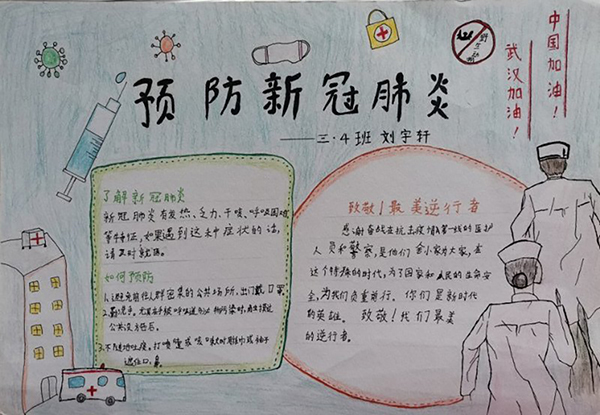 预防新冠肺炎
——三.4班 刘宇轩
中国加油！
武汉加油！
野生动物
了解新冠肺炎
新冠肺炎有发热、乏力、干咳、呼吸困难
等特征，如果遇到这种症状的话，
请及时就医。
如何预防
1.避免前往人群密集的公共场所，出门戴口罩。
2.勤洗手，尤其在手被呼吸道分泌物污染时、触摸过
公共设施后。
3.不随地吐痰。打喷嚏或咳嗽时用纸巾或袖子
遮住口、鼻。
致敬！最美逆行者
感谢奋战在抗击疫情第一线的医护
人员和警察，是他们舍小家为大家，在
这个特殊的时代，为了国家和人民的生命安
全，为我们负重前行。你们是新时代
的英雄。致敬！我们最美
的逆行者。